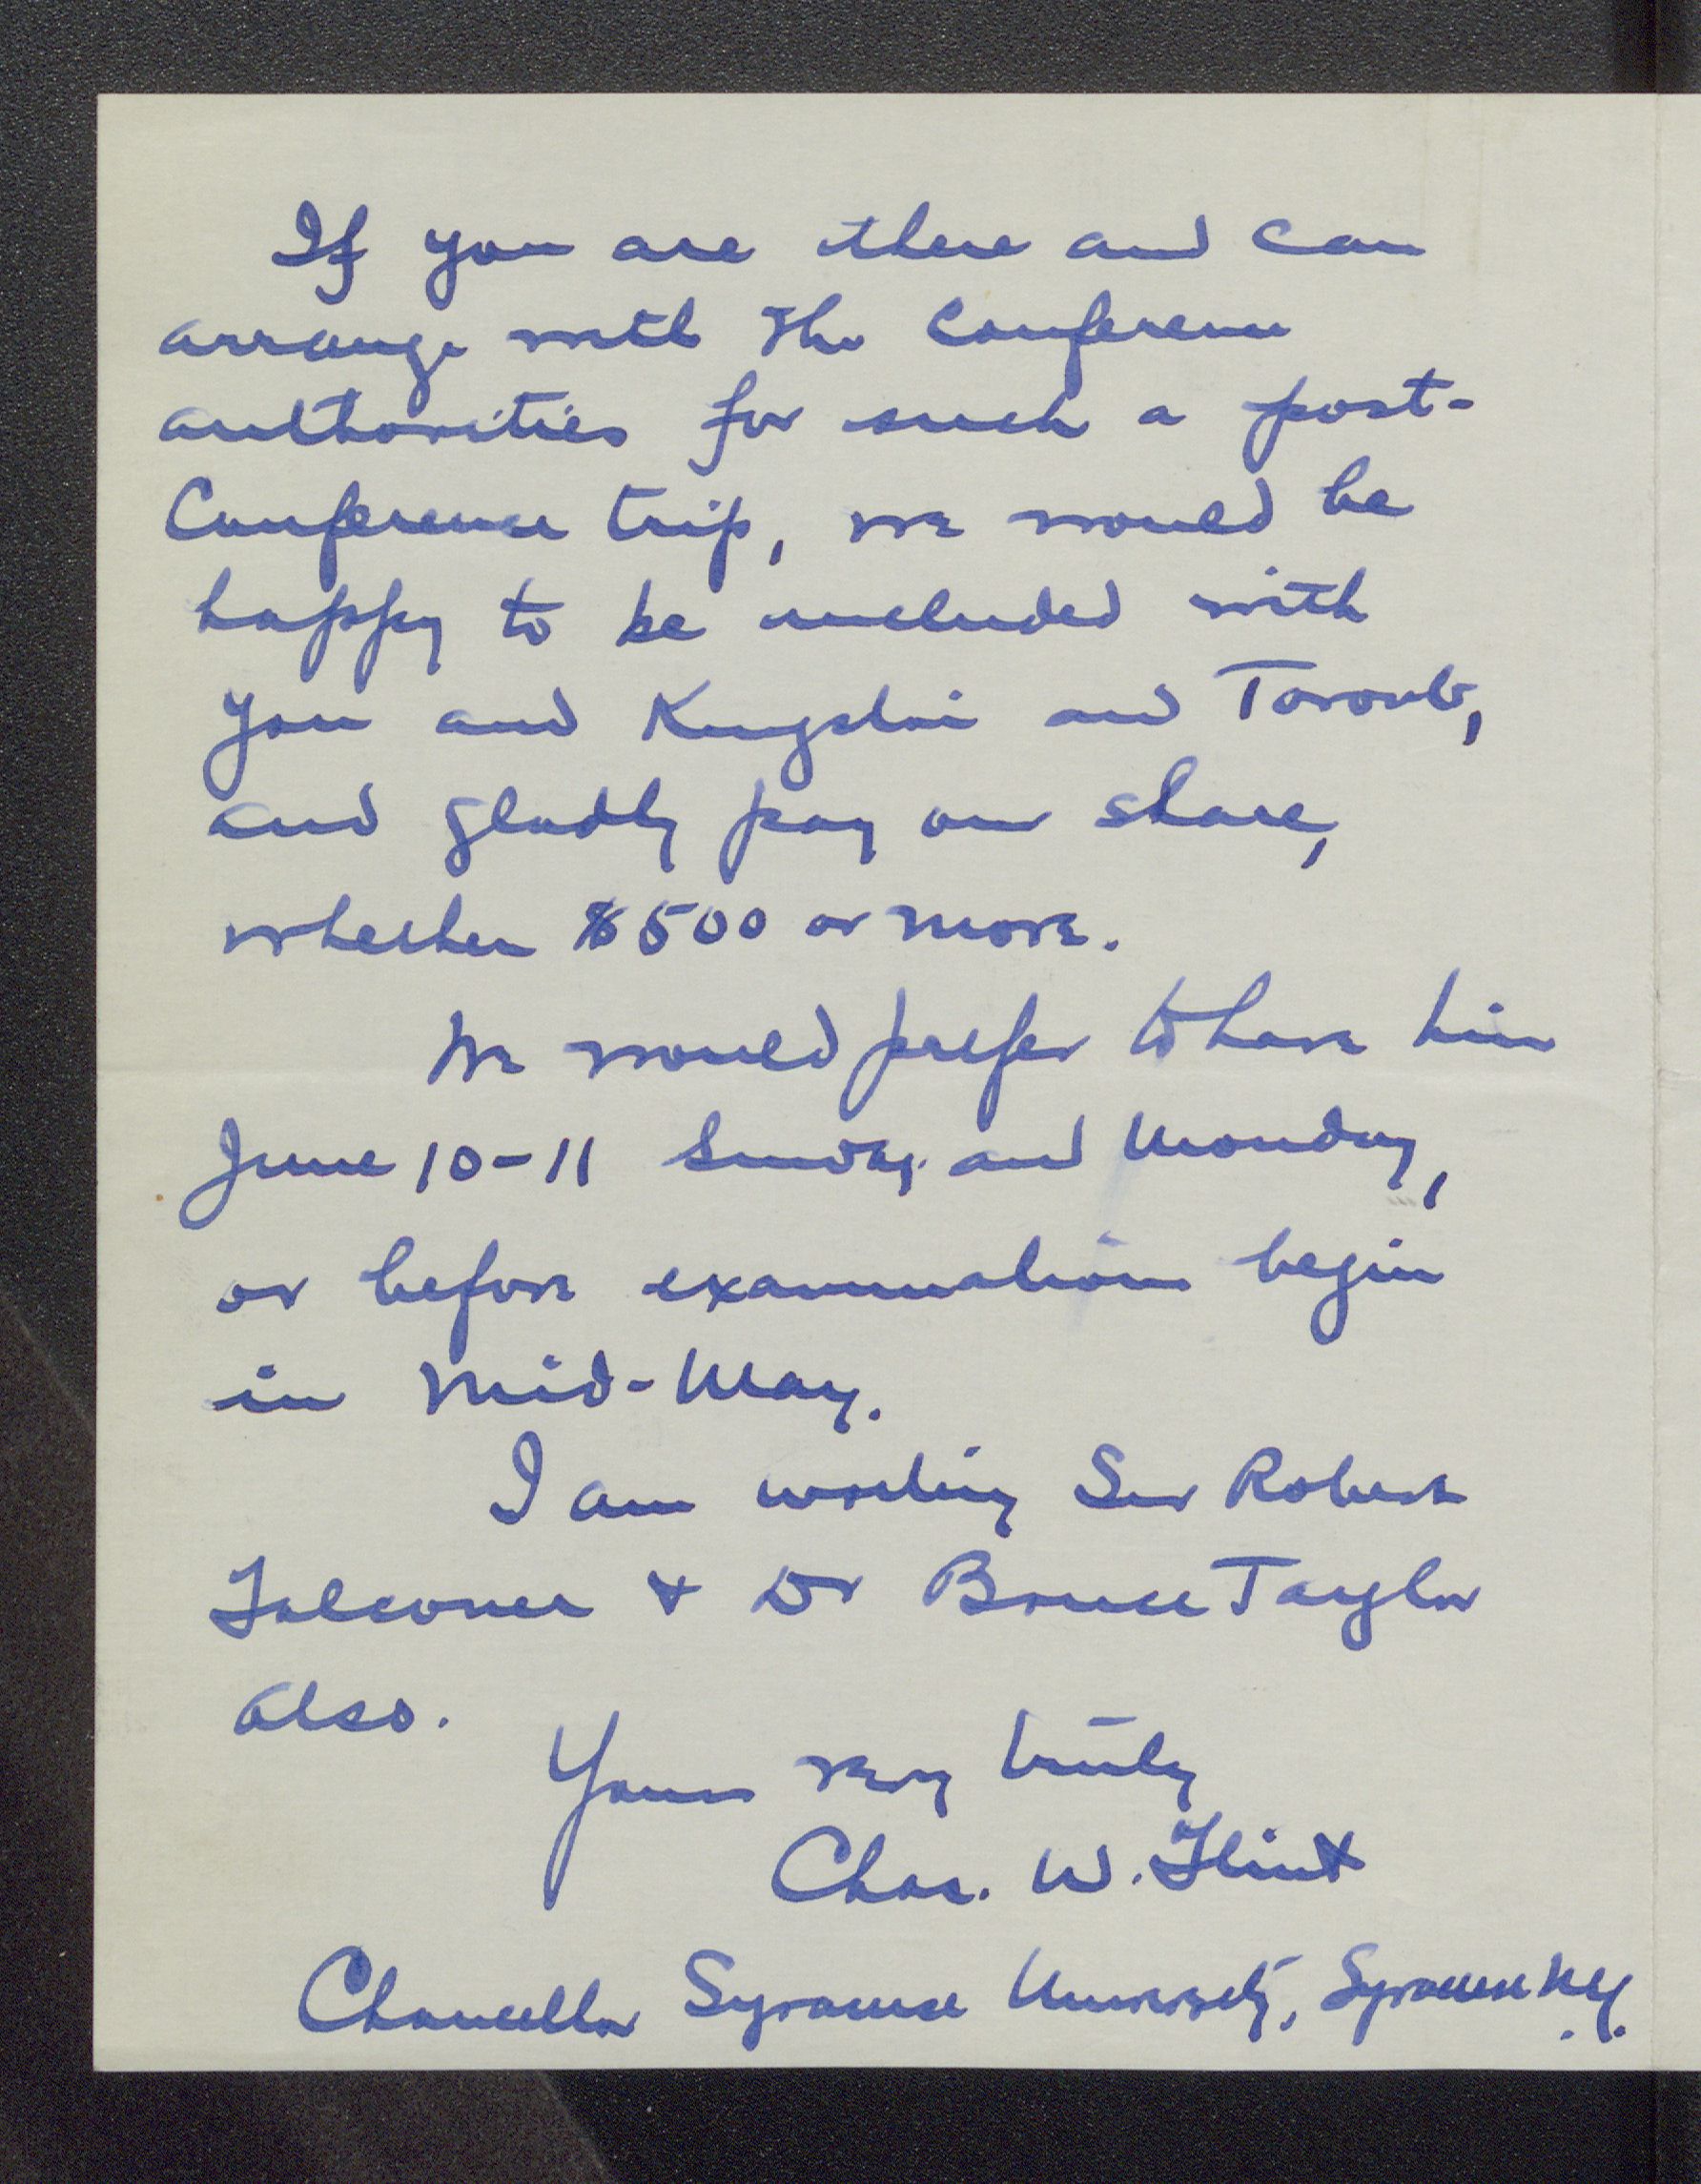 If you are there and can
arrange with the Conference
authorities for such a post-
Conference trip, we would be
happy to be included with
you and Kingston and Toronto,
and gladly pay our share,
whether $500 or more.
We would prefer to have him
June 10-11 Sunday and Monday,
or before examination begin
in mid-May.
I am writing Sir Robert
Falconer & Dr Bruce Taylor
also.
Yours very truly
Chas. W. Flint
Chancellor Syracuse University, Syracuse N.Y.